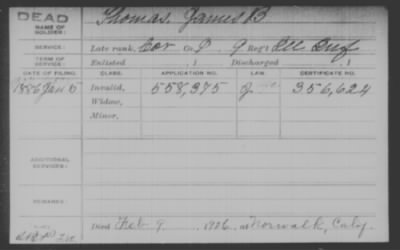 DEAD
NAME OF SOLDIER:
Thomas, James B
SERVICE:
Late rank, Cor Co. D, 9 Reg't Ill Inf
TERM OF SERVICE:
Enlisted , 1 Discharged , 1
DATE OF FILING. CLASS. APPLICATION NO. LAW. CERTIFICATE NO.
1886 Jan 5 Invalid, 558,375 356,624
Widow,
Minor,
ADDITIONAL SERVICES:
REMARKS:
Died Feb 9 1926, at Norwalk, Caly.